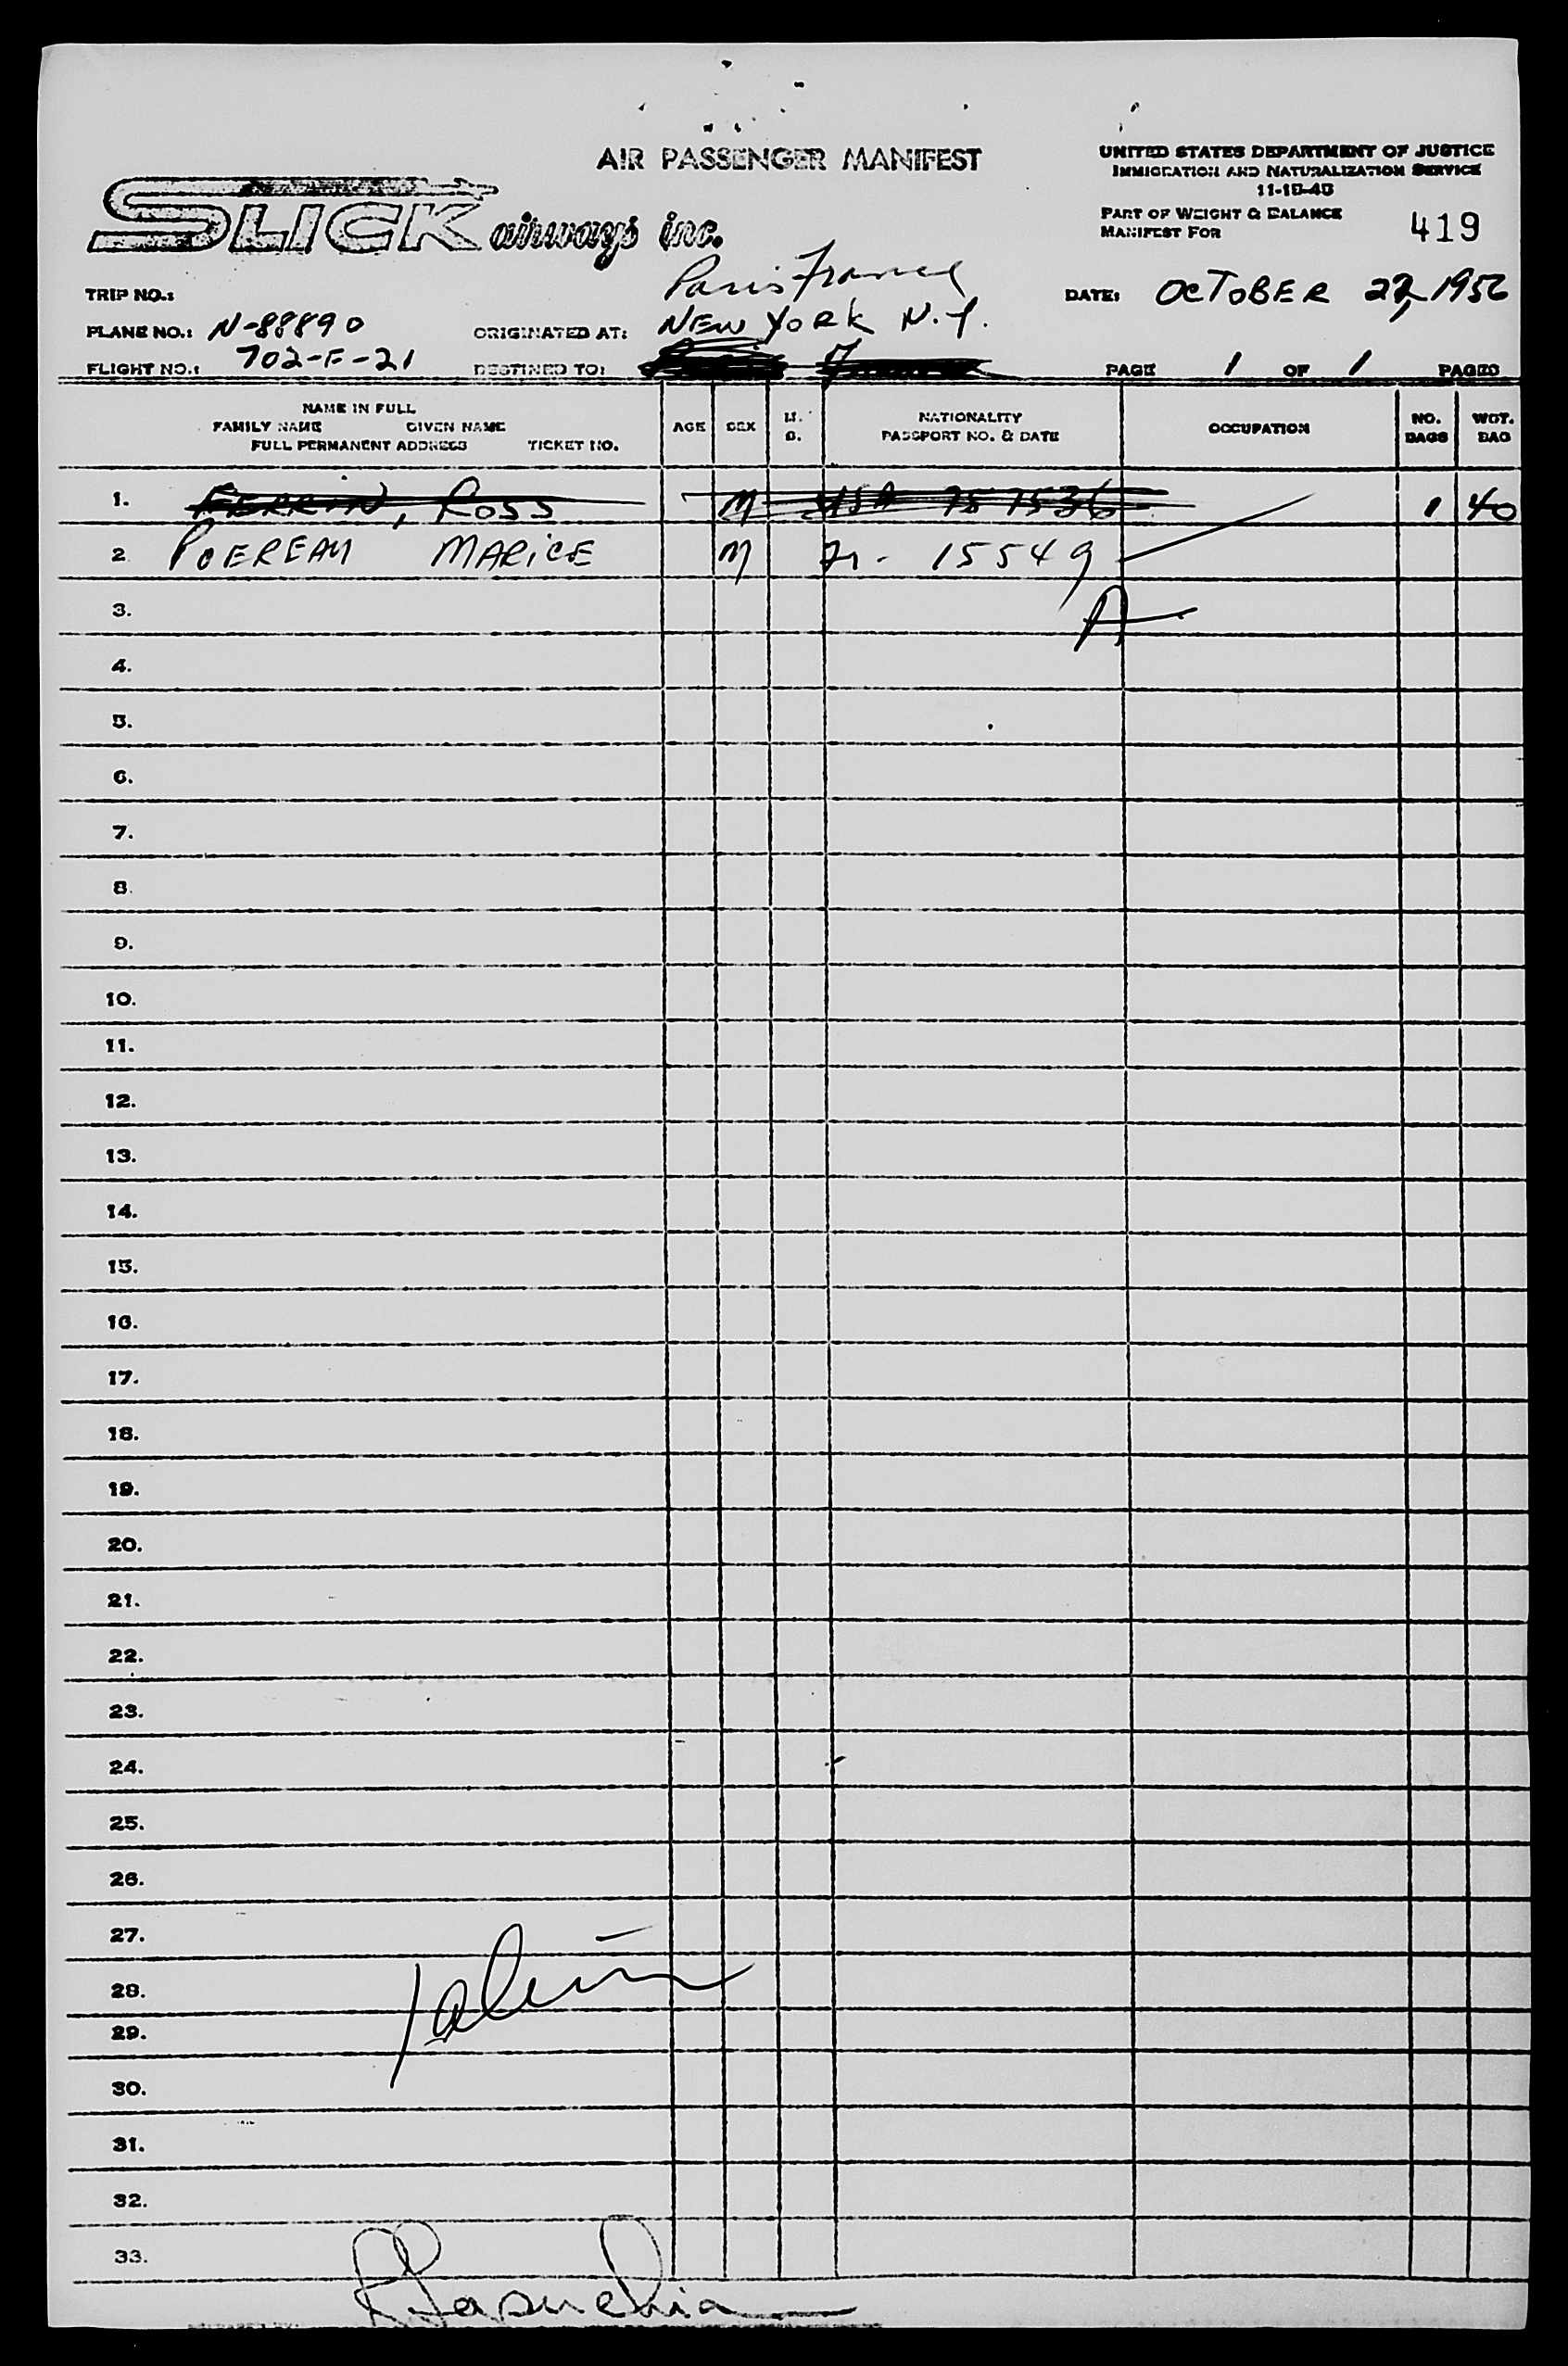 AIR PASSENGER MANIFEST
UNITED STATES DEPARTMENT OF JUSTICE
IMMIGRATION AND NATURALIZATION SERVICE
11-18-48
PART OF WEIGHT & BALANCE
MANIFEST FOR
419
SLICK airways inc.
Paris France
TRIP NO.:
DATE: OCTOBER 27, 1956
PLANE NO.: N-88890
ORIGINATED AT: NEW YORK N.Y.
FLIGHT NO.: 702-F-21
DESTINED TO:
PAGE 1 OF 1 PAGES
NAME IN FULL
FAMILY NAME GIVEN NAME
FULL PERMANENT ADDRESS TICKET NO.
AGE SEX
NATIONALITY
PASSPORT NO. & DATE
OCCUPATION
NO.
BAGS
WGT.
BAG
1. Ross M USA 1 40
2. POEREAM MARICE M Fr- 15549
3.
4.
5.
6.
7.
8.
9.
10.
11.
12.
13.
14.
15.
16.
17.
18.
19.
20.
21.
22.
23.
24.
25.
26.
27.
28.
29.
30.
31.
32.
33.